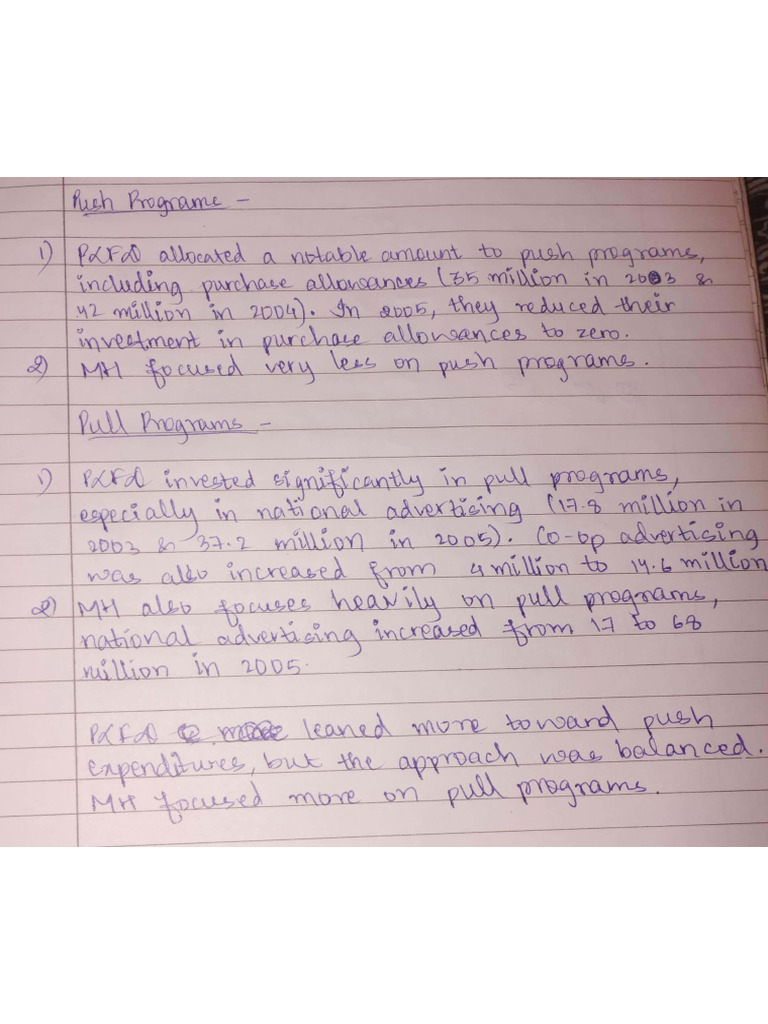 Push Programs -
1) P&F&D allocated a notable amount to push programs,
including purchase allowances (35 million in 2003 &
42 million in 2004). In 2005, they reduced their
investment in purchase allowances to zero.
2) MH focused very less on push programs.
Pull Programs -
1) P&F&D invested significantly in pull programs,
especially in national advertising (17.8 million in
2003 & 37.2 million in 2005). Co-op advertising
was also increased from 4 million to 14.6 million
2) MH also focuses heavily on pull programs,
national advertising increased from 17 to 68
million in 2005.
P&F&D leaned more toward push
expenditures, but the approach was balanced.
MH focused more on pull programs.